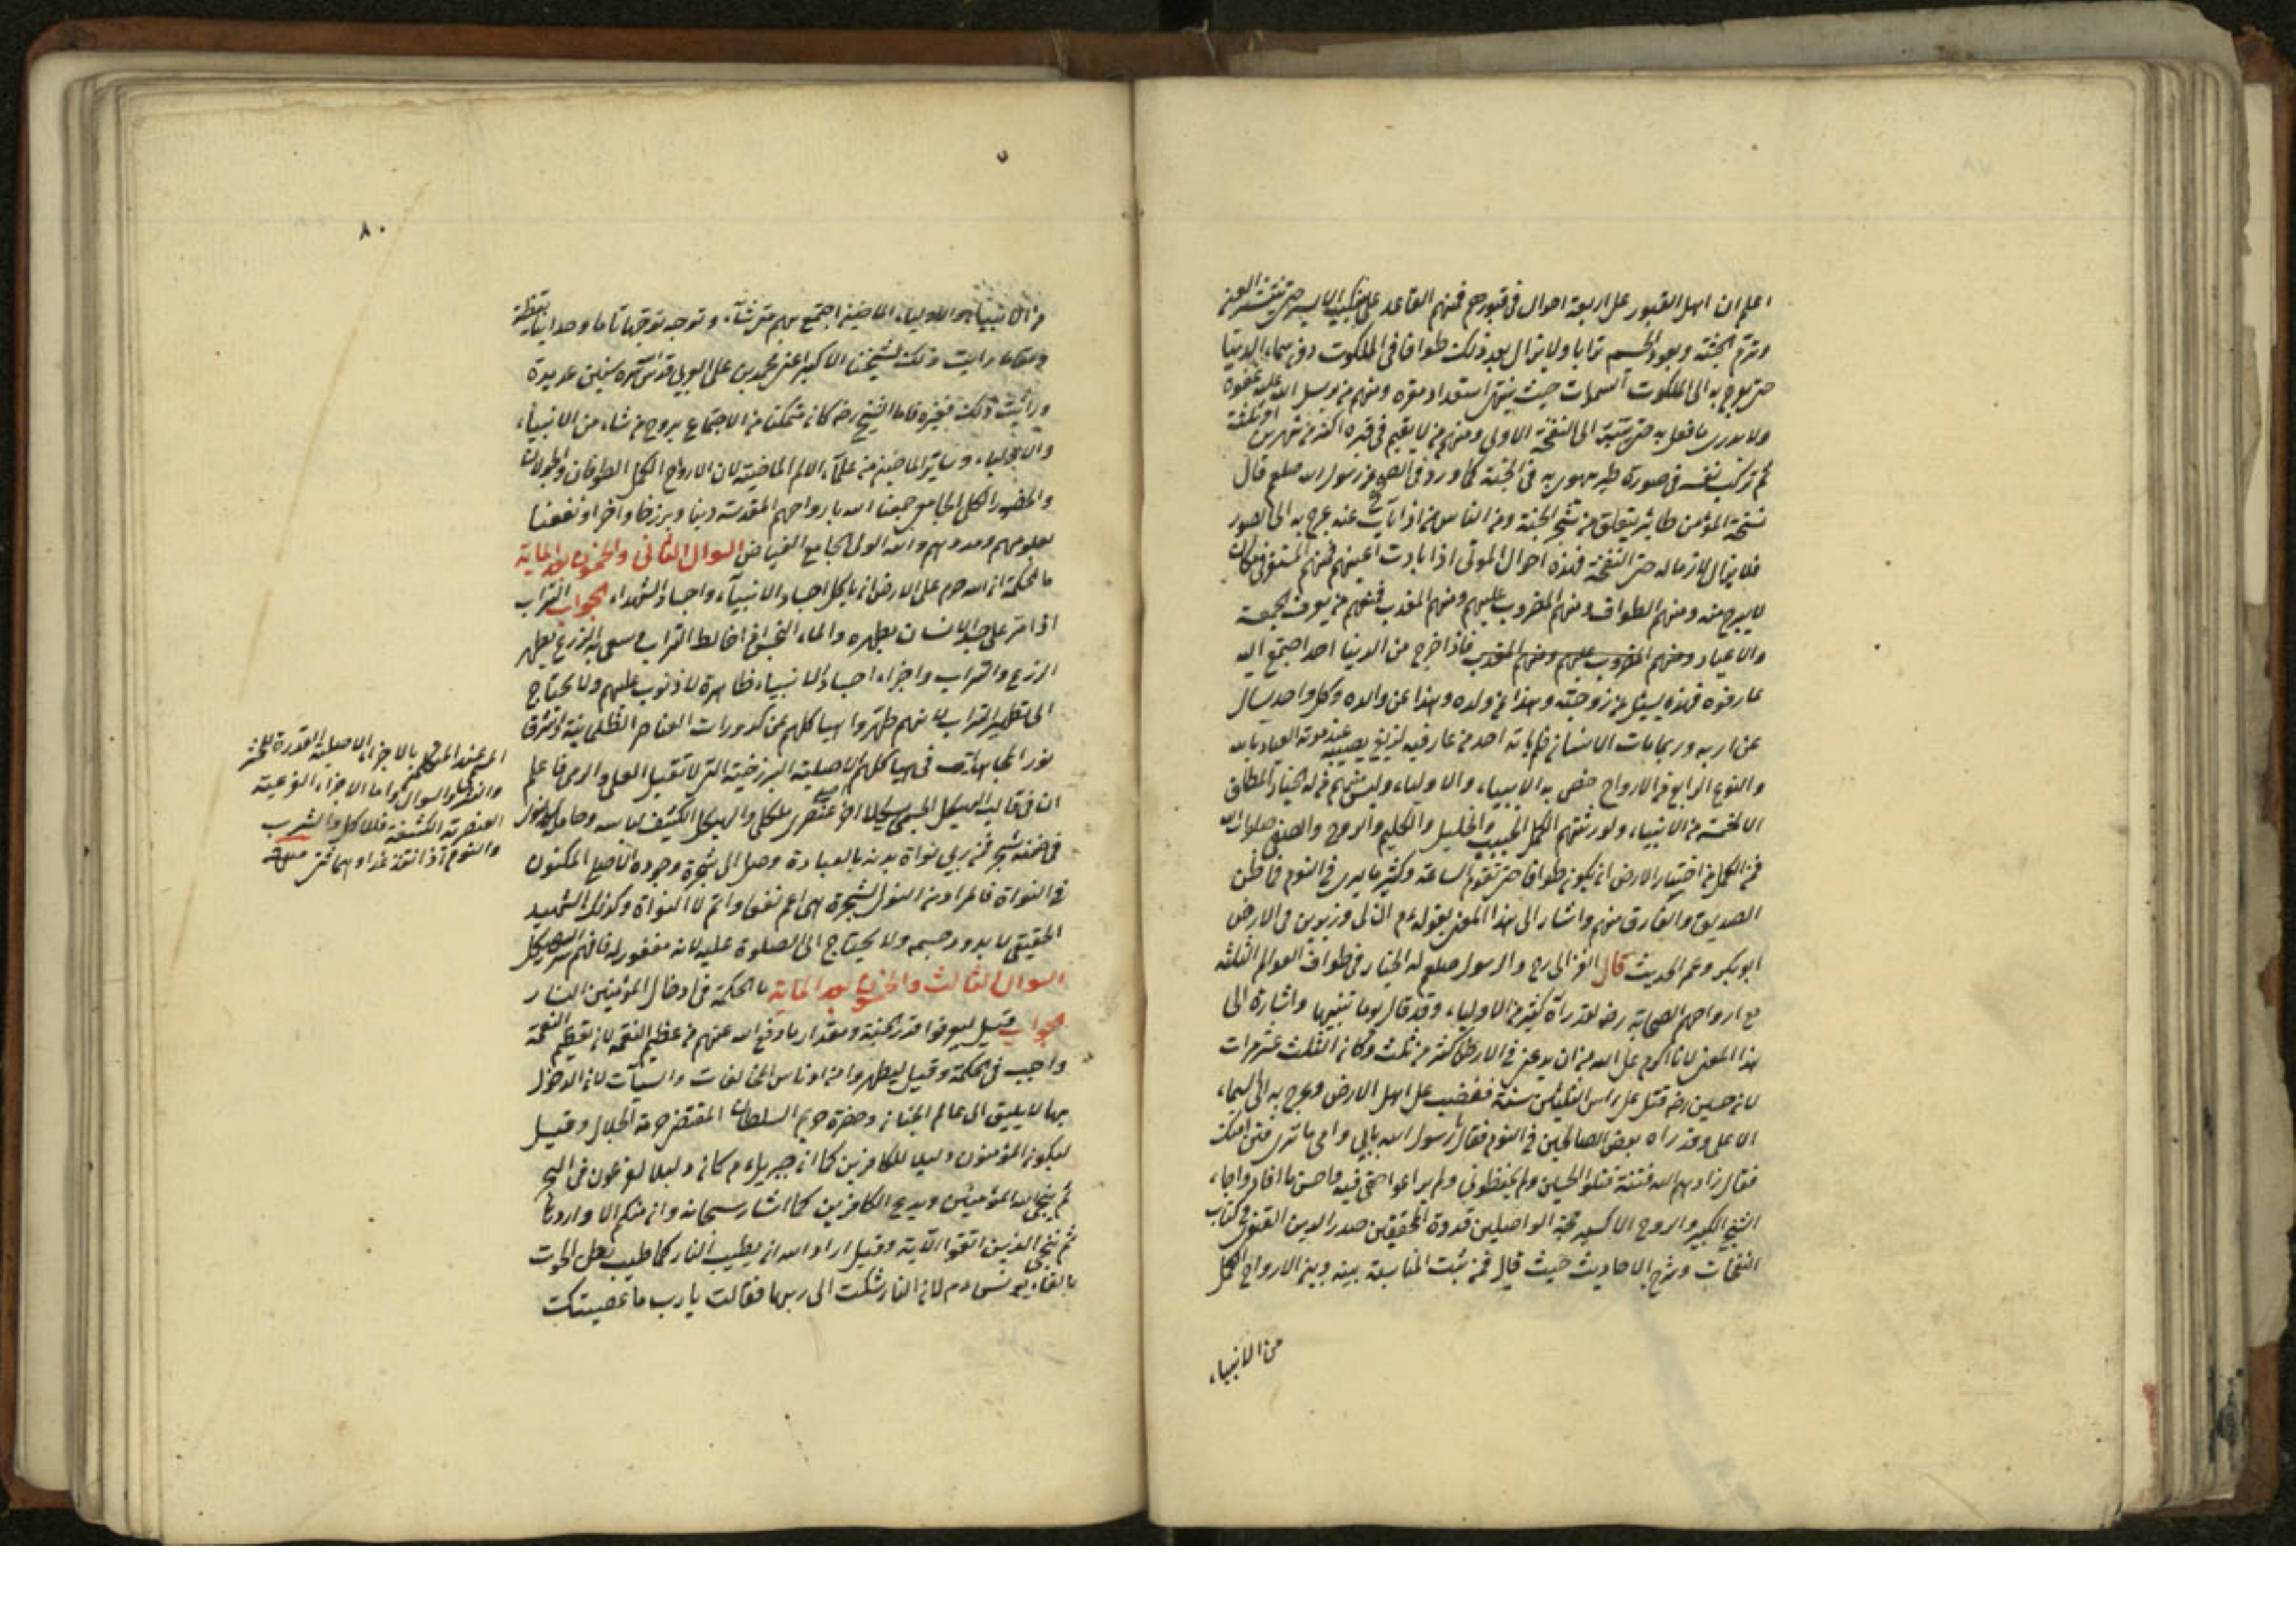 اعلم ان اهل القبور على اربعة احوال فى قبورهم فمنهم القاعد على
وترم الجثة ويعود الجسم ترابا ولا يزال بعد ذلك طوافا فى الملكوت دون سماء الدنيا
حتى يعرج به الى الملكوت السموات حيث ينتهى استعداد مقره ومنهم من يرسل الله عليه غفوة
ولا يدرى ما فعل به حتى ينتبه الى النفخة الاولى ومنهم من لا يقيم فى قبره اكثر من شهرين او ثلثة
ثم تركب نفسه فى صورة طير يهوى به فى الجنة كما ورد فى الصحيح عن رسول الله صلعم قال
نسمة المؤمن طائر يتعلق من شجر الجنة ومن الناس من اذا عنه عرج به الى الصور
فلا يزال ملازما له حتى النفخة فهذه احوال الموتى اذا بادت اعينهم فمنهم
لا يبرح منه ومنهم الطواف ومنهم المضروب عليهم ومنهم المعذب فمنهم من يعرف الجمعة
والاعياد ومنهم المضروب عليهم ومنهم المعذب فاذا خرج من الدنيا احد اجتمع اليه
عارفوه فهذه يسئل عن زوجته وهذا عن ولده وهذا عن والده وكل واحد يسال
عن اربه وربما مات الانسان فلم ياته احد من عارفيه لزيغ يصيبه عند موته العياذ بالله
والنوع الرابع من الارواح خص به الانبياء والاولياء وليس منهم من له الخيار المطلق
الا خمسة من الانبياء ولورثتهم الكمل الحبيب والخليل والكليم والروح والصفى صلوات الله
فمن الكمل من اختيار الارض ان يكون طوافا حتى تقوم الساعة وكثير ما يرى فى النوم
الصديق والفارق منهم واشار الى هذا المعنى بقوله عم ان لى وزيرين فى الارض
ابو بكر وعمر الحديث قال الغزالى رح والرسول صلعم له الخيار فى طواف العوالم الثلثة
مع ارواحهم الصحابة رضه لقد رآه كثير من الاولياء وقد قال يوما تنبيها واشارة الى
هذا المعنى لانا اكرم على الله من ان يدعنى فى الارض اكثر من ثلث وكان الثلث عشر مرات
لان حسين رضه قتل على راس الثلثين سنة فغضب على اهل الارض وعرج به الى السماء
الاعلى وقد رآه بعض الصالحين فى النوم فقال يا رسول الله بابى وامى ما ترى فتن امتك
فقال زادهم الله فتنة قتلوا الحسين ولم يحفظونى ولم يراعوا حقى فيه واحسن ما افاد واجاد
الشيخ الكبير والروح الاكسير نخبة الواصلين قدوة المحققين صدر الدين القنوى فى كتاب
النفحات وشرح الاحاديث حيث قال فمن ثبت المناسبة بينه وبين الارواح الكمل
من الانبياء
٨٠
من الانبياء والاولياء الماضين اجتمع بهم متى شاء وتوجه توجها تاما وجدانيا يقظة
ومناما رايت ذلك لشيخنا الاكبر اعنى محمد بن على العربى قدس سره سنين عديدة
ورأيت ذلك لغيره فاما الشيخ رضه كان متمكنا من الاجتماع بروح من شاء من الانبياء
والاولياء وسائر الماضين من علماء الامم الماضية لان الارواح الكمل الطوفان
والحضور الكلى الجامع جمعنا الله بارواحهم المقدسة دينا وبرزخا واخرا ونفعنا
بعلومهم ومددهم والله الولى الجامع الفياض السوال الثانى والخمسون بعد الماية
ما الحكمة ان الله حرم على الارض ان ياكل اجساد الانبياء واجساد الشهداء الجواب التراب
اذا مر على جسد الانسان يطهره والماء النجس اذا خالط التراب وسعى به الزرع يطهر
الزرع والتراب واجزاء اجساد الانبياء طاهرة لا ذنوب عليهم ولا يحتاج
الى تطهير التراب لانهم طهروا هياكلهم عن كدورات العناصر الظلمانية واشرق
نور فى هياكلهم الاصلية البرزخية التى لا تقبل فاعلم
ان فى قالب الهيكل الجسمى هيكلا اخر والهيكل الكثيف لباسه وحامل له
فى ضمنه شجر فمن ربى نواة بدنه بالعبادة وصل الى شجرة وجوده الاصلى المكنون
فى النواة فالمراد من النول الشجرة هى اعم نفعا واتم لا النواة وكذلك الشهيد
الحقيقى لا يدود جسمه ولا يحتاج الى الصلوة عليه لانه مغفور له فافهم سر الهيكل
السوال الثالث والخمسون بعد الماية ما الحكمة فى ادخال المؤمنين النار
الجواب قيل ليعرفوا قدر الجنة ومقدار ما دفع الله عنهم من عظيم النقمة لان تعظيم النعمة
واجب فى الحكمة وقيل ليطهروا من ادناس المخالفات والسيآت لان الدخول
بها لا يليق الى عالم الجنان وحضرة حريم السلطان المقتضى حرمة الجلال وقيل
ليكون المؤمنون دليلا للكافرين كما ان جبريل عم كان دليلا لفرعون فى البحر
ثم ينجى الله المؤمنين ويدع الكافرين كما اشار سبحانه وان منكم الا واردها
ثم ننجى الذين اتقوا الآية وقيل اراد الله ان يطيب النار كما طيب بطن الحوت
بالقاء يونس عم لان النار شكت الى ربها فقالت يا رب ما عصيتك
المعتمد عند المتكلمين بالاجزاء الاصلية المقدرة للحشر
والنشر والسوال واما الاجزاء الفرعية
العنصرية الكثيفة فللاكل والشرب